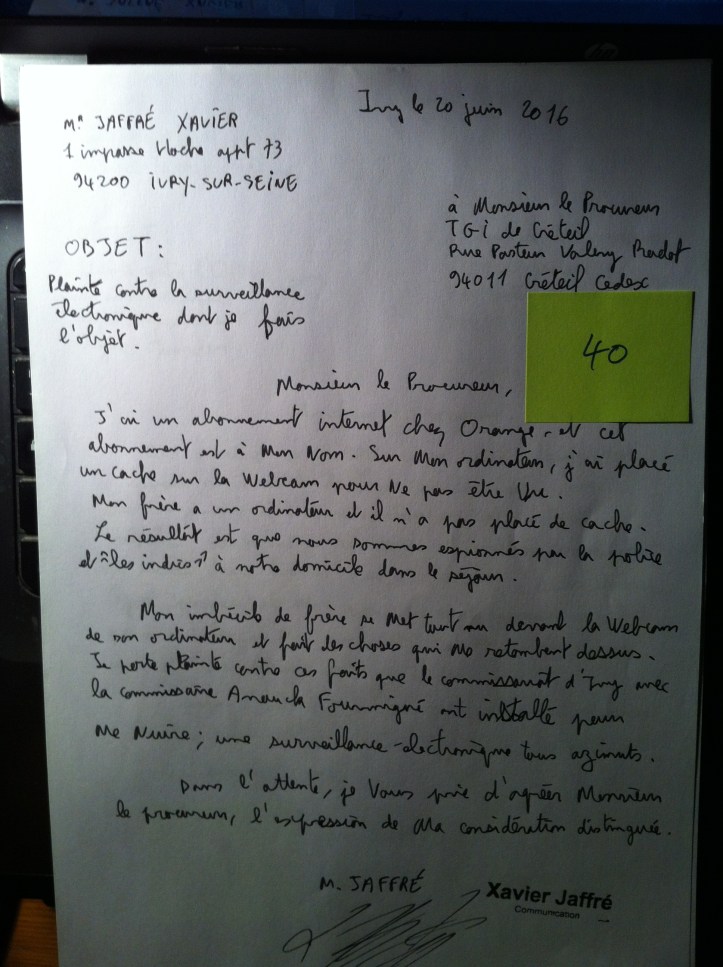 Ivry le 20 juin 2016
Mr JAFFRÉ XAVIER
1 impasse Hoche appt 73
94200 IVRY-SUR-SEINE
à Monsieur le Procureur
TGI de Créteil
Rue Pasteur Valery Radot
94011 Créteil Cedex
OBJET :
Plainte contre la surveillance
électronique dont je fais
l'objet.
40
Monsieur le Procureur,
J'ai un abonnement internet chez Orange - et cet
abonnement est à mon Nom. Sur mon ordinateur, j'ai placé
un cache sur la Webcam pour Ne pas être Vu.
Mon frère a un ordinateur et il n'a pas placé de cache.
Le résultat est que nous sommes espionnés par la police
et "les indics" à notre domicile dans le séjour.
Mon imbécile de frère se met tout nu devant la Webcam
de son ordinateur et fait des choses qui me retombent dessus.
Je porte plainte contre ces faits que le commissariat d'Ivry avec
la commissaire Anouck Fourmigué ont installé pour
Me Nuire ; une surveillance-electronique tous azimuts.
Dans l'attente, je Vous prie d'agréer Monsieur
le procureur, l'expression de Ma considération distinguée.
M. JAFFRÉ
Xavier Jaffré
Communication